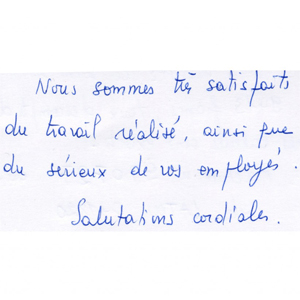 Nous sommes très satisfaits
du travail réalisé, ainsi que
du sérieux de vos employés.
Salutations cordiales.